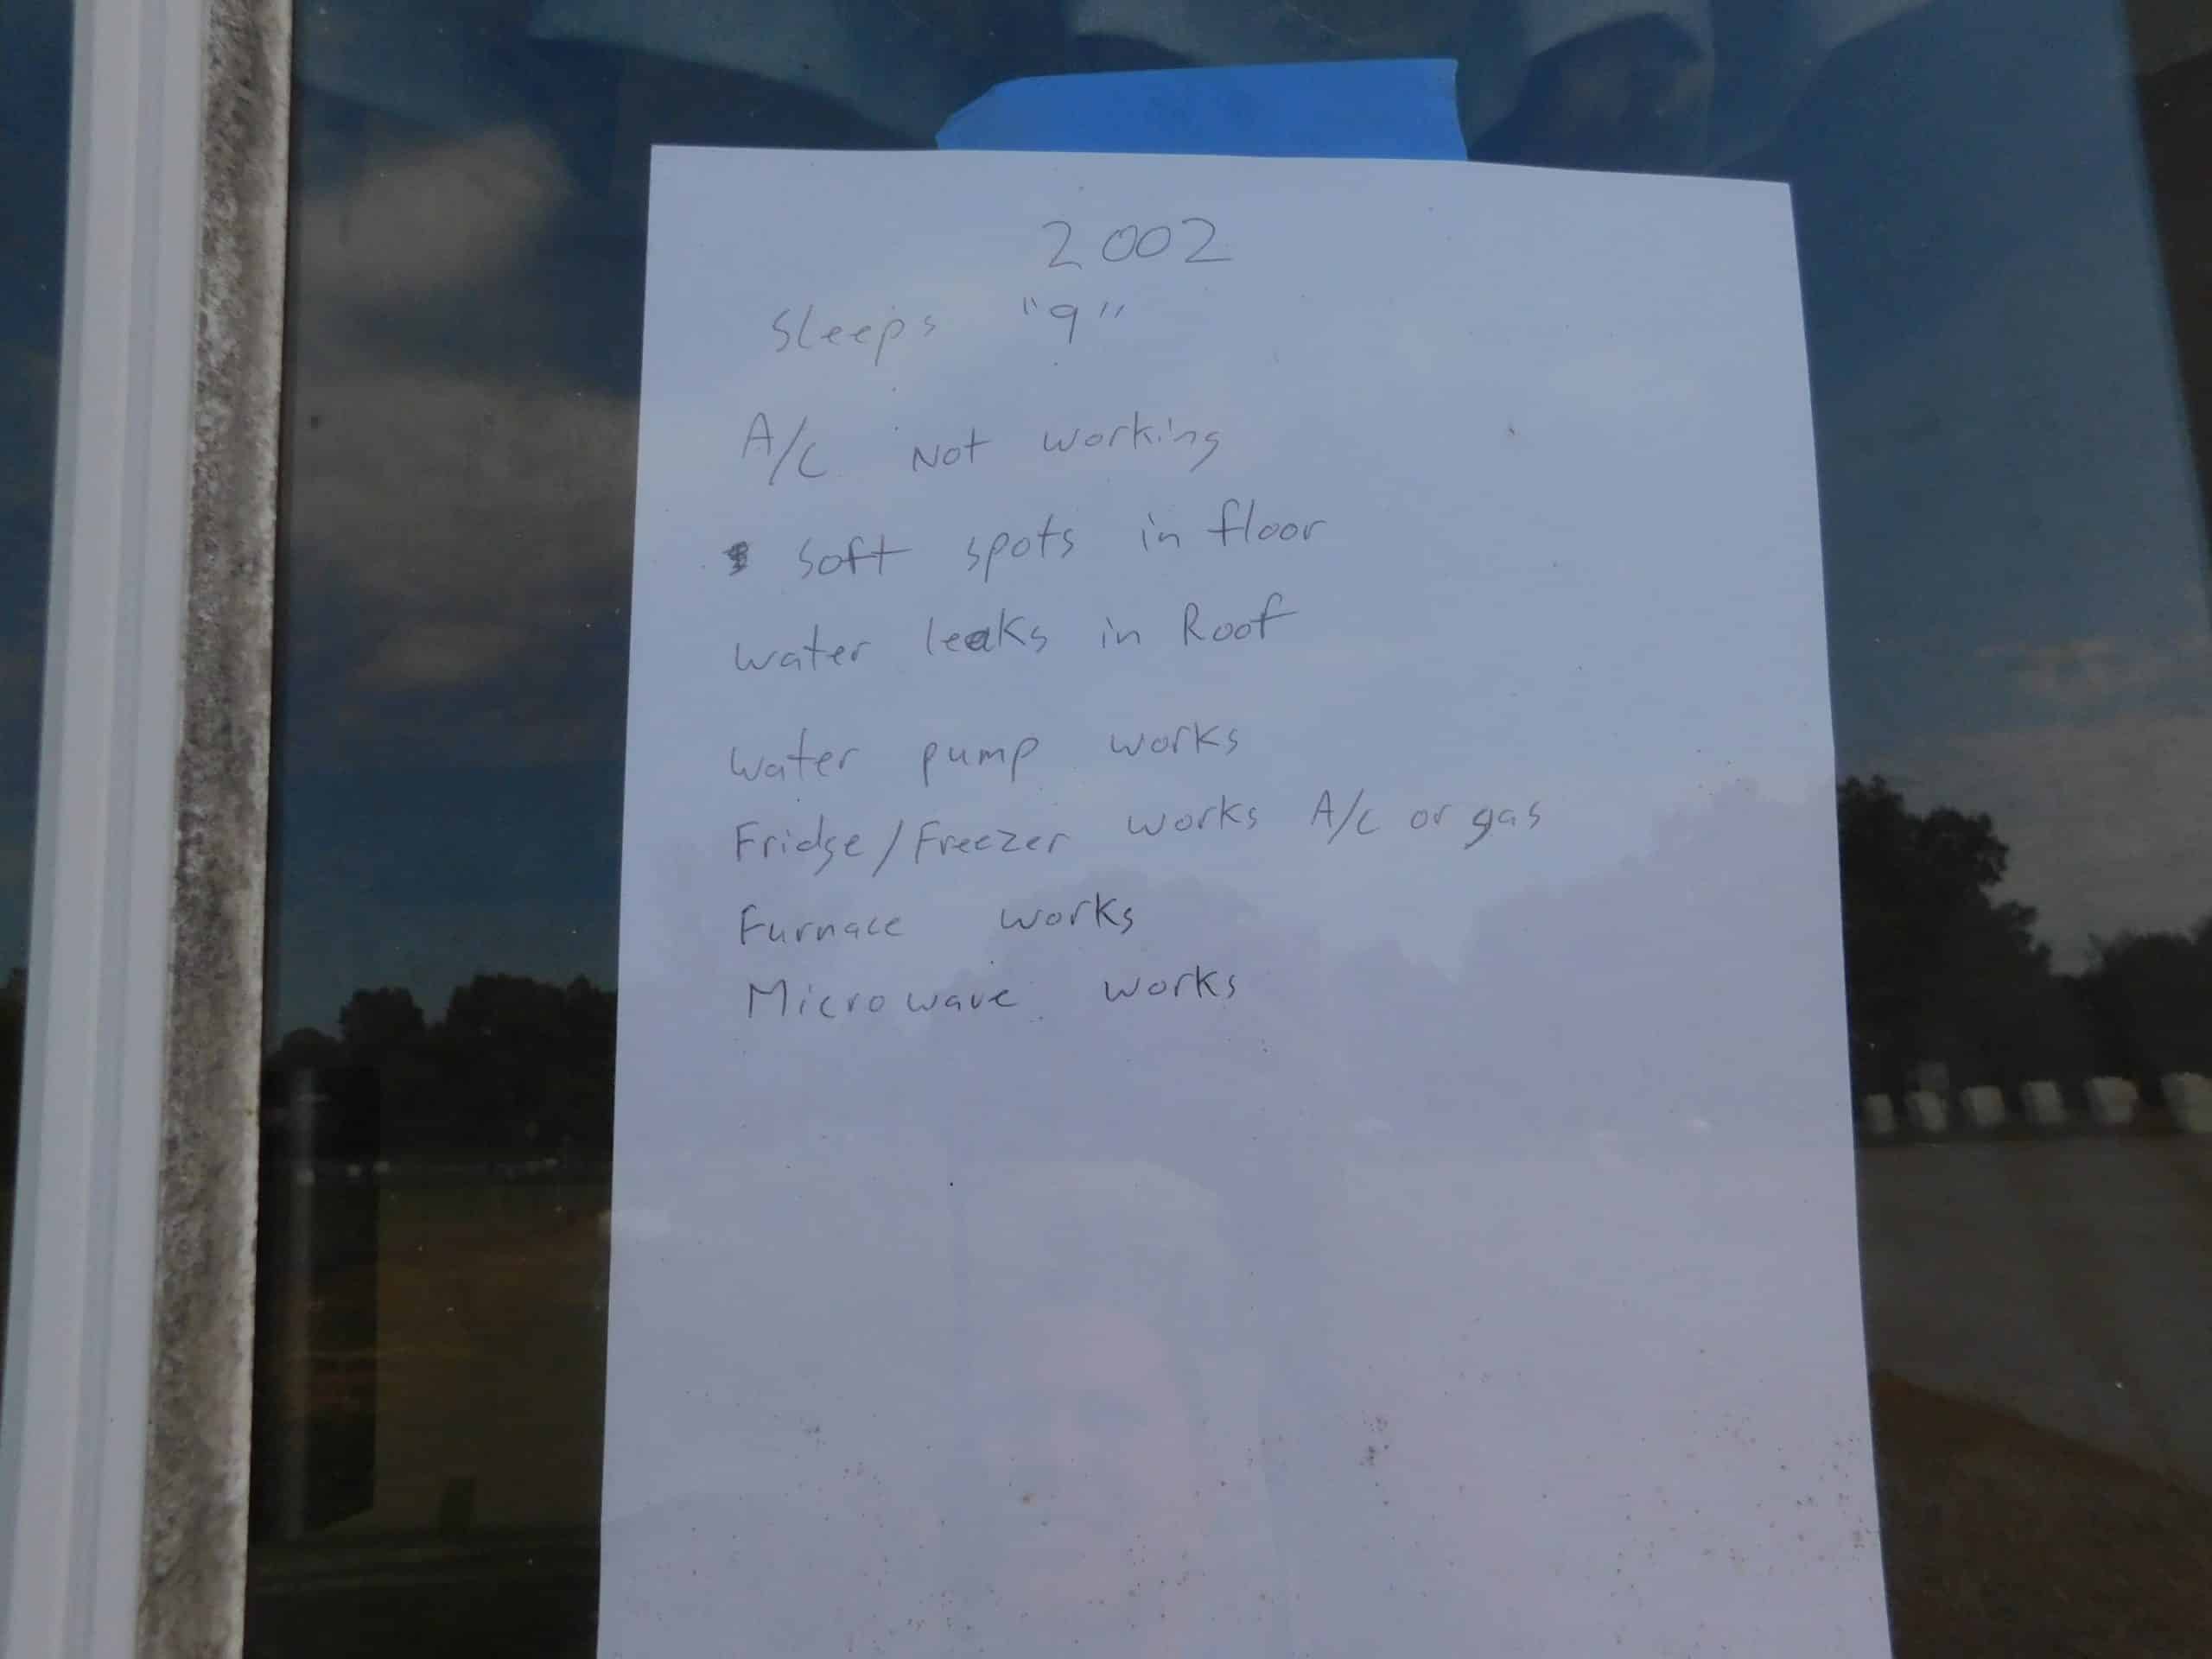 2002
Sleeps "9"
A/C Not working
Soft spots in floor
water leaks in Roof
water pump works
Fridge/Freezer works A/C or gas
Furnace works
Microwave works